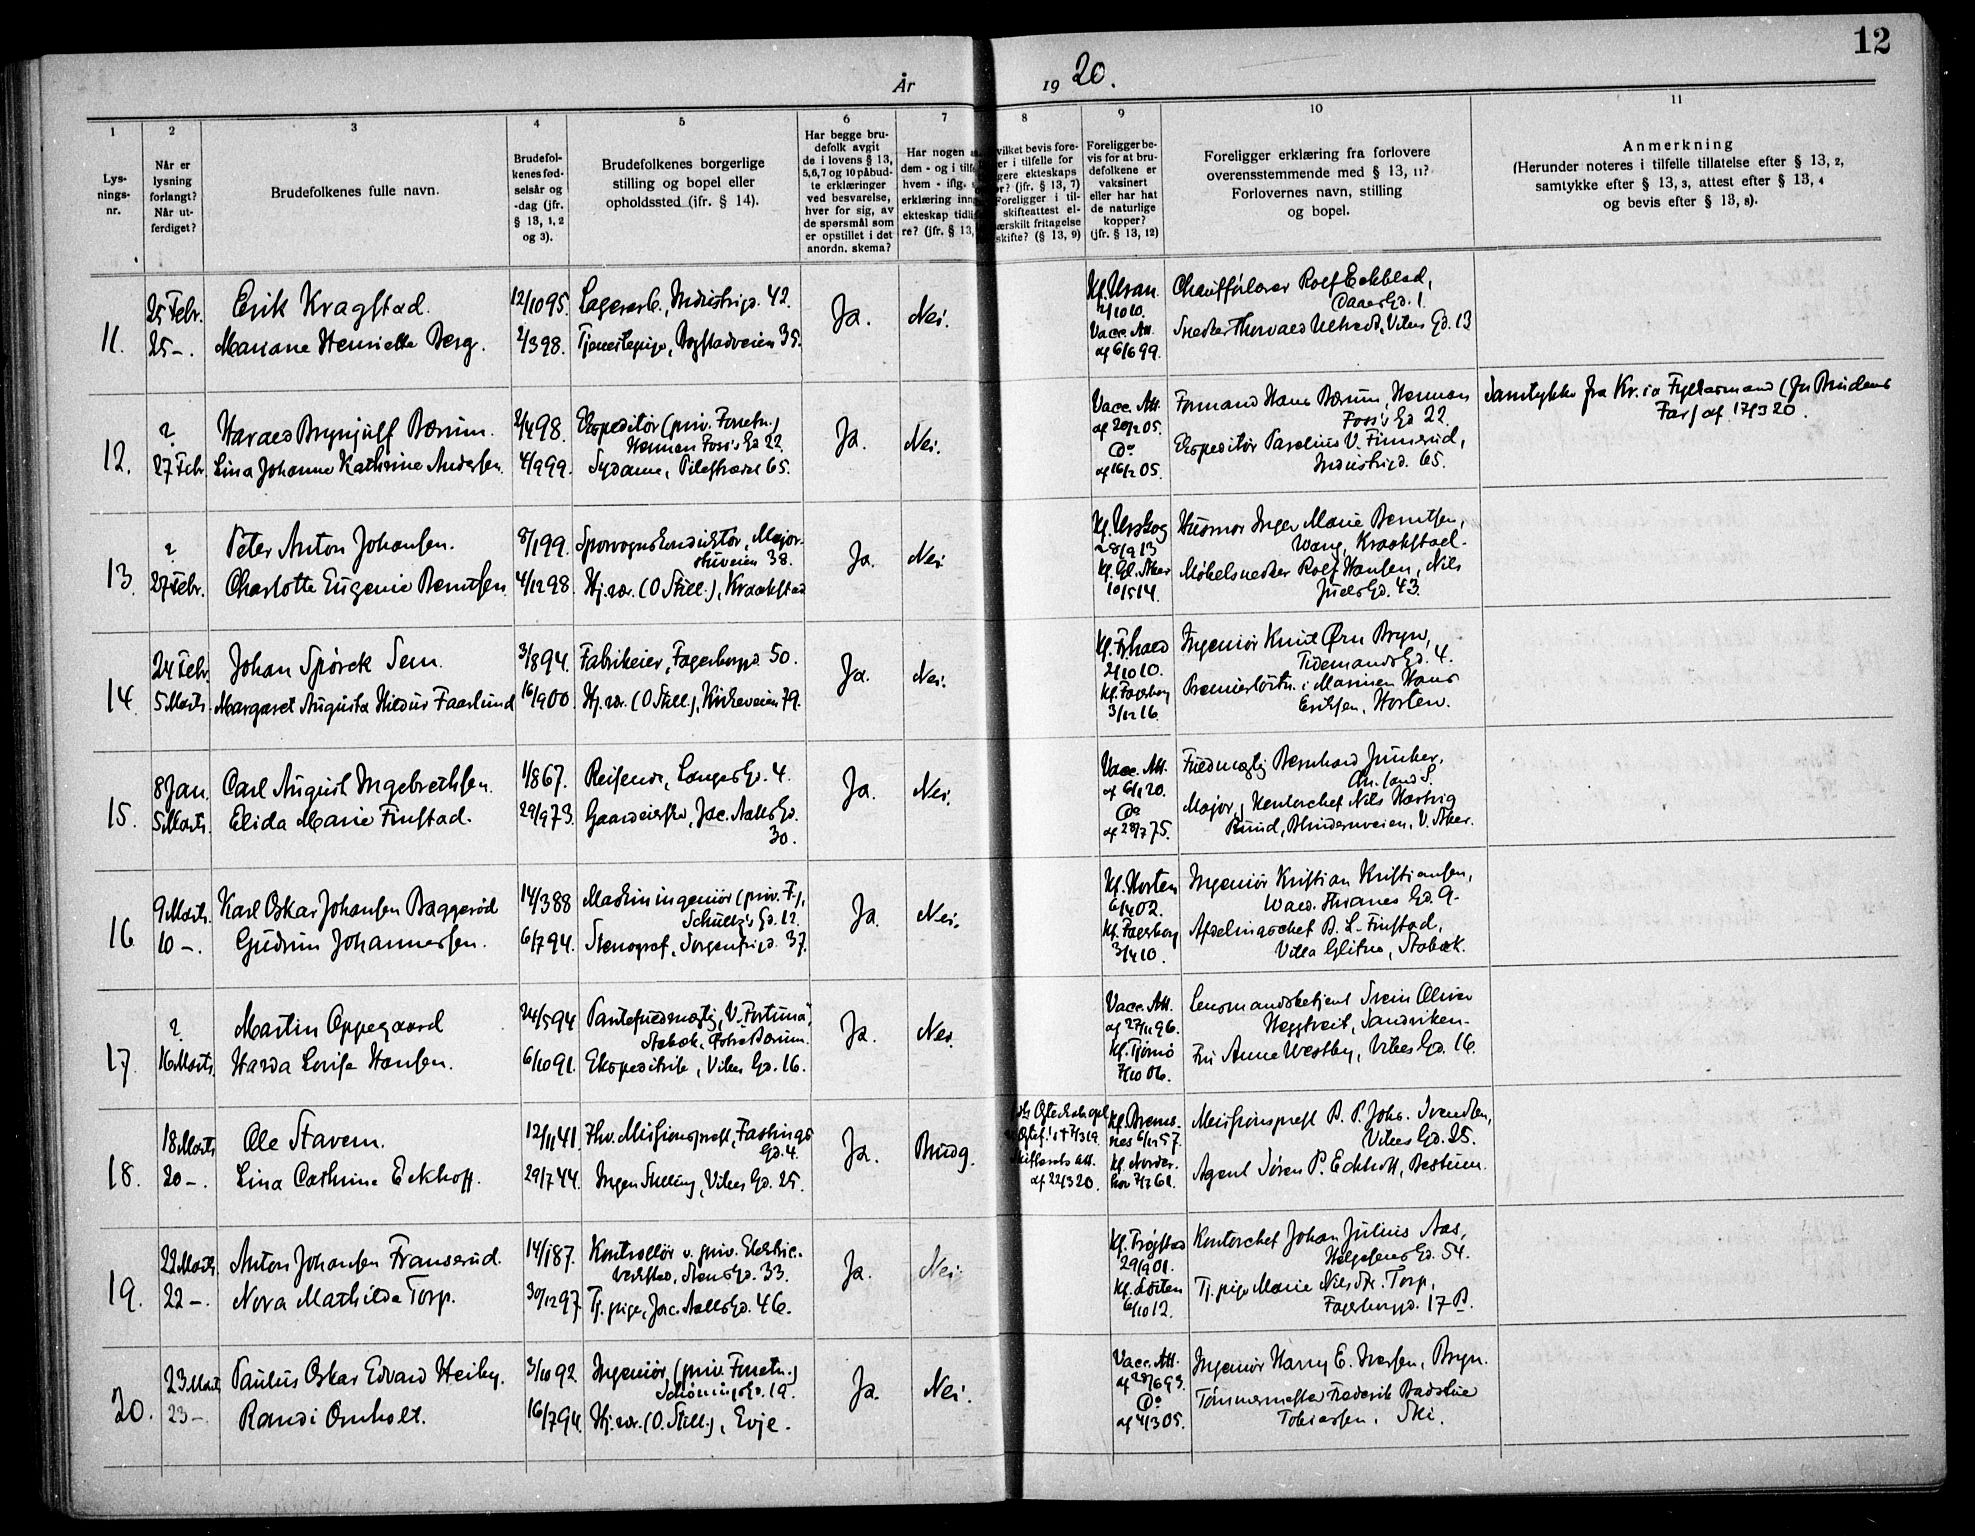 12
År 1920.
1 2 3 4 5 6 7 8 9 10 11
Lys-
nings-
nr.
Når er
lysning
forlangt?
Når ut-
ferdiget?
Brudefolkenes fulle navn.
Brudefol-
kenes fød-
selsår og
-dag (jfr.
§ 13, 1, 2
og 3).
Brudefolkenes borgerlige
stilling og bopel eller
opholdssted (jfr. § 14).
Har begge bru-
defolk avgit
de i lovens § 13,
5, 6, 7 og 10 påbud-
te erklæringer
ved besvarelse,
hver for sig, av
de spørsmål som
er opstillet i det
anordn. skema?
Har nogen a
dem - og i tilf
hvem - iflg.
erklæring inn
ekteskap tidli
re? (jfr. § 13,
vilket bevis fore-
er i tilfelle for
gere ekteskaps
r? (jfr. § 13, 7)
Foreligger i til-
skifteattest el-
ærskilt fritagelse
skifte? (§ 13, 9)
Foreligger be-
vis for at bru-
defolkene er
vaksinert
eller har hat
de naturlige
kopper?
(jfr. § 13, 12)
Foreligger erklæring fra forlovere
overensstemmende med § 13, 11?
Forlovernes navn, stilling
og bopel.
Anmerkning
(Herunder noteres i tilfelle tillatelse efter § 13, 2,
samtykke efter § 13, 3, attest efter § 13, 4
og bevis efter § 13, 8).
11. 25 Febr. Erik Kragstad. 12/10 95. Lagerarb., Industrigd. 42. Ja. Nei.
25 –. Mariane Henriette Berg. 2/3 98. Tjenestepige, Bogstadveien 35.
2/10 10. Vacc. Att. af 6/6 99.
Chaufførlærer Rolf Eckblad,
Daaes Gd. 1.
Snedker Thorvald Ulfsedt, Vibes Gd. 13
12. ? Harald Brynjulf Bærum. 2/4 98. Ekspeditør (priv. Forretn.)
Herman Foss's Gd 22. Ja. Nei.
27 Febr. Lina Johanne Kathrine Andersen. 4/9 99. Sydame, Pilestrædet 65.
Vacc. Att. af 20/2 05. Do af 16/2 05.
Formand Hans Bærum, Herman
Foss's Gd 22.
Ekspeditør Parelius V. Finnerud,
Industrigd. 65.
Samtykke fra Kr.ia Fylkesmand (for Brudens
Far) af 17/3 20.
13. ? Peter Anton Johansen. 8/1 99. Sporvognskonduktør, Major-
stuveien 38. Ja. Nei.
27 Febr. Charlotte Eugenie Berntsen 4/12 98. Hj. vær. (O Still.), Kraakstad
Kf. Urskog 28/9 13 Kf. Gl. Aker 10/5 14.
Husmor Inger Marie Berntsen,
Wang, Kraakstad.
Møbelsnedker Rolf Hansen, Nils
Juels Gd. 43.
14. 24 Febr. Johan Spørck Sem. 3/8 94. Fabrikeier, Fagerborggd. 50. Ja. Nei.
5 Marts. Margaret Augusta Hildur Faarlund 16/9 00 Hj. vær. (O Still.), Kirkeveien 79.
2/10 10. Kf. Fagerborg 3/12 16.
Ingeniør Knut Ørn Bryn,
Tidemands Gd. 4.
Premierløitn. i Marinen Hans
Eriksen, Horten.
15. 8 Jan. Carl August Ingebrethsen. 1/8 67. Reisende, Langes Gd. 4. Ja. Nei.
5 Marts. Elida Marie Finstad. 29/9 73. Gaardeierske, Jac. Aalls Gd.
30.
Vacc. Att. af 6/1 20. Do af 28/7 75.
Fuldmægtig Bernhard Junker,
Chr.sand S.
Major, Kontorchef Nils Hartvig
Ruud, Blindernveien, V. Aker.
16 9 Marts. Karl Oskar Johansen Baggerød 14/3 88 Maskiningeniør (priv. F.),
Schultz's Gd. 12. Ja. Nei.
10 –. Gudrun Johannessen. 6/7 94. Stenograf, Sorgenfrigd. 37.
Kf. Horten 6/4 02. Kf. Fagerborg 3/4 10.
Ingeniør Kristian Kristiansen,
Wald. Thranes Gd. 9.
Afdelingschef B. L. Finstad,
Villa Glitne, Stabæk.
17. ? Martin Oppegaard 24/5 94 Pantefuldmægtig, V. "Fortuna",
Stabæk, Østre Bærum. Ja. Nei.
16 Marts. Harda Lovise Hansen. 6/10 91. Ekspeditrice, Vibes Gd. 16.
Vacc. Att. af 27/11 96. Kf. Tjømø 7/10 06.
Lensmandsbetjent Svein Oliver
Heggtveit, Sandviken.
Fru Anna Westby, Vibes Gd. 16.
18. 18 Marts Ole Stavem. 12/11 41. Fhv. Missionsprest, Fastings
Gd. 4. Ja. Brudg.
20 –. Lina Cathrine Eckhoff. 29/7 44. Ingen Stilling, Vibes Gd. 25.
Skifterets att.
af 22/3 20.
6/12 57. 7/7 61.
Missionsprest B. P. Johs. Svendsen,
Vibes Gd. 25.
Agent Søren P. Eckhoff, Bestum.
19. 22 Marts. Anton Johansen Franserud. 14/1 87. Kontrollør v. priv. Elektric.
Verksted, Stens Gd. 33. Ja. Nei
22 –. Nora Mathilde Torp. 30/12 97. Tj. pige, Jac. Aalls Gd. 46.
Kf. Trøgstad 29/9 01. Kf. Løiten 6/10 12.
Kontorchef Johan Julius Aas,
Helgesens Gd. 54.
Tj. pige Marie Nils Dtr. Torp,
Fagerborggd. 17 B.
20. 23 Marts Paulus Oskar Edvard Heiby. 3/10 92 Ingeniør, (priv. Forretn.)
Schønings Gd. 19. Ja. Nei.
23 –. Randi Omholt. 16/7 94. Hj. vær. (O. Still.), Evje.
Vacc. Att. af 28/6 93. Do af 4/3 05.
Ingeniør Harry E. Iversen, Bryn.
Tømmermester Frederik Badstue
Tobiassen, Ski.